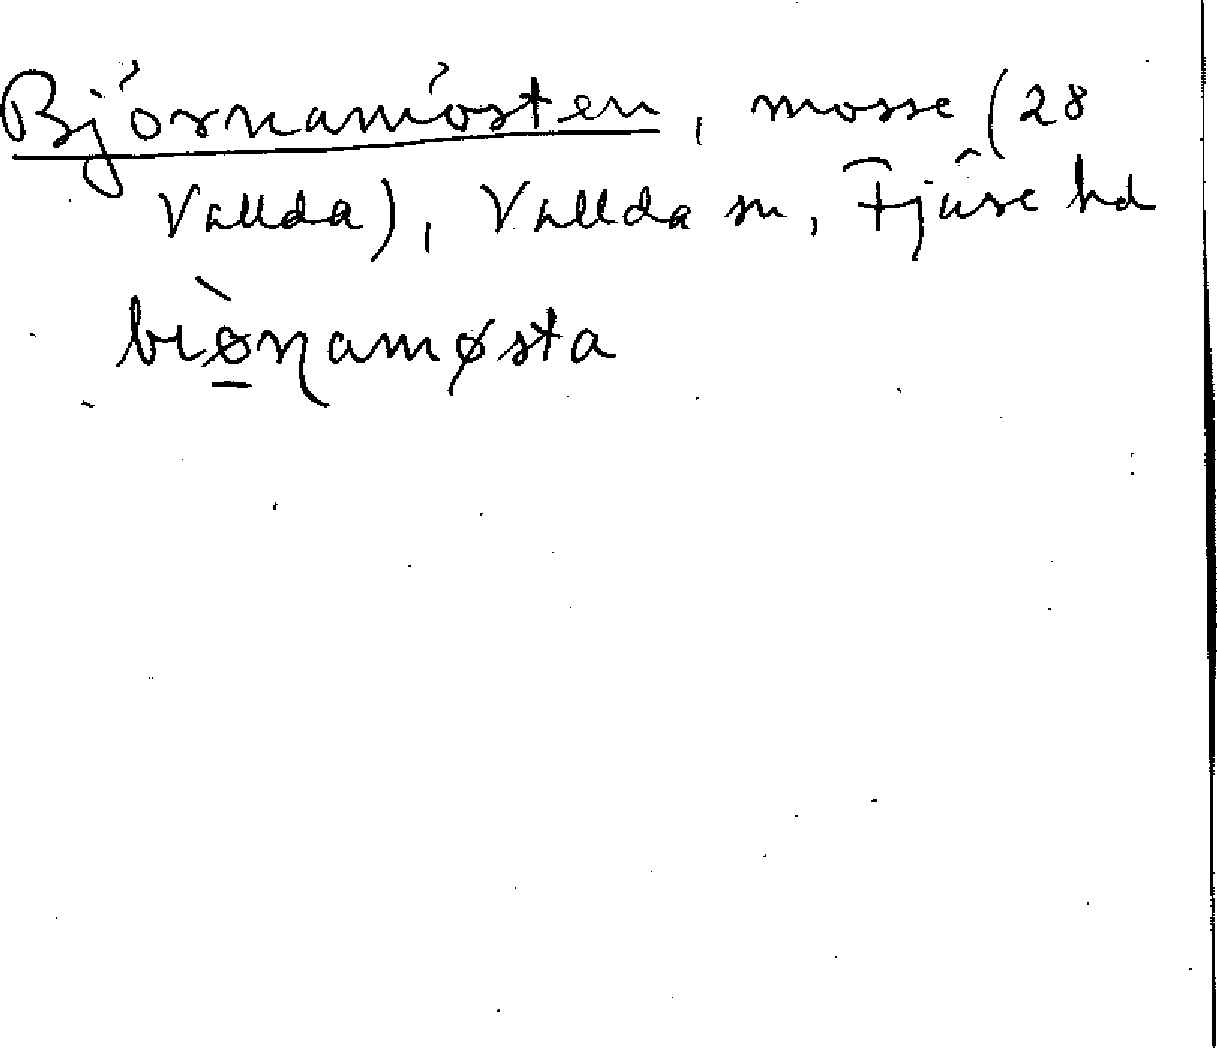 Björnamösten, mosse (28
Vallda), Vallda sn, Fjäre hd
biö̲̀ɳamøsta